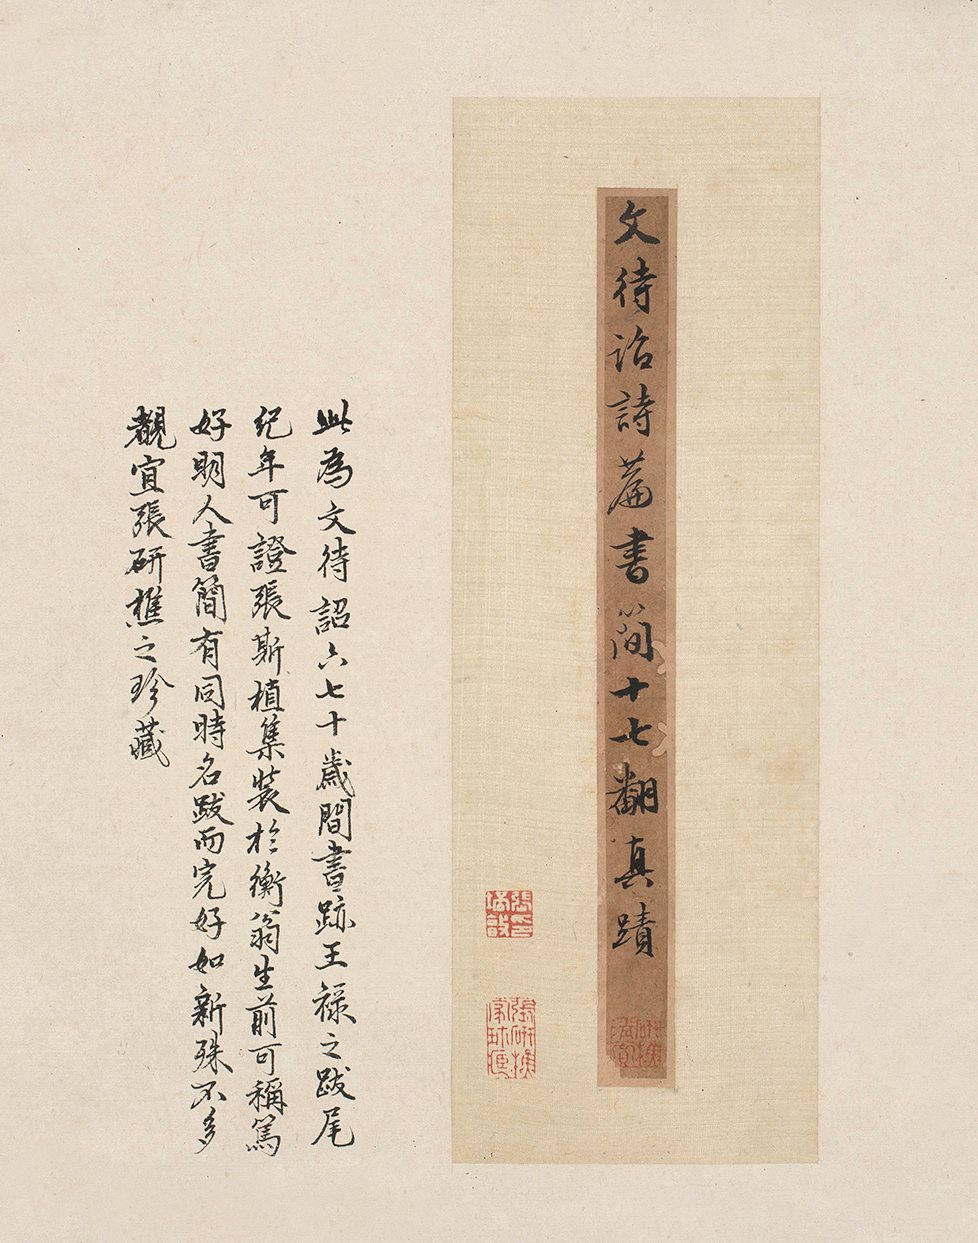 文待詔詩蕳書簡十七翻真蹟
此為文待詔六七十歲間書跡王祿之跋尾
紀年可證張斯植集裝於衡翁生前可稱篤
好明人書簡有同時名跋而完好如新殊不多
覯宜張研樵之珍藏